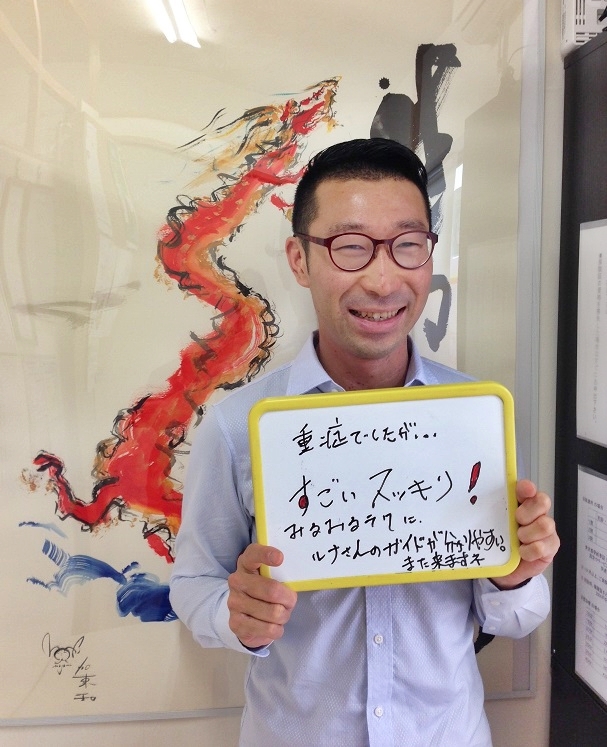 重症でしたが...
すごいスッキリ!
みるみるラクに、
ルナさんのガイドが分かりやすい。
また来ますネ